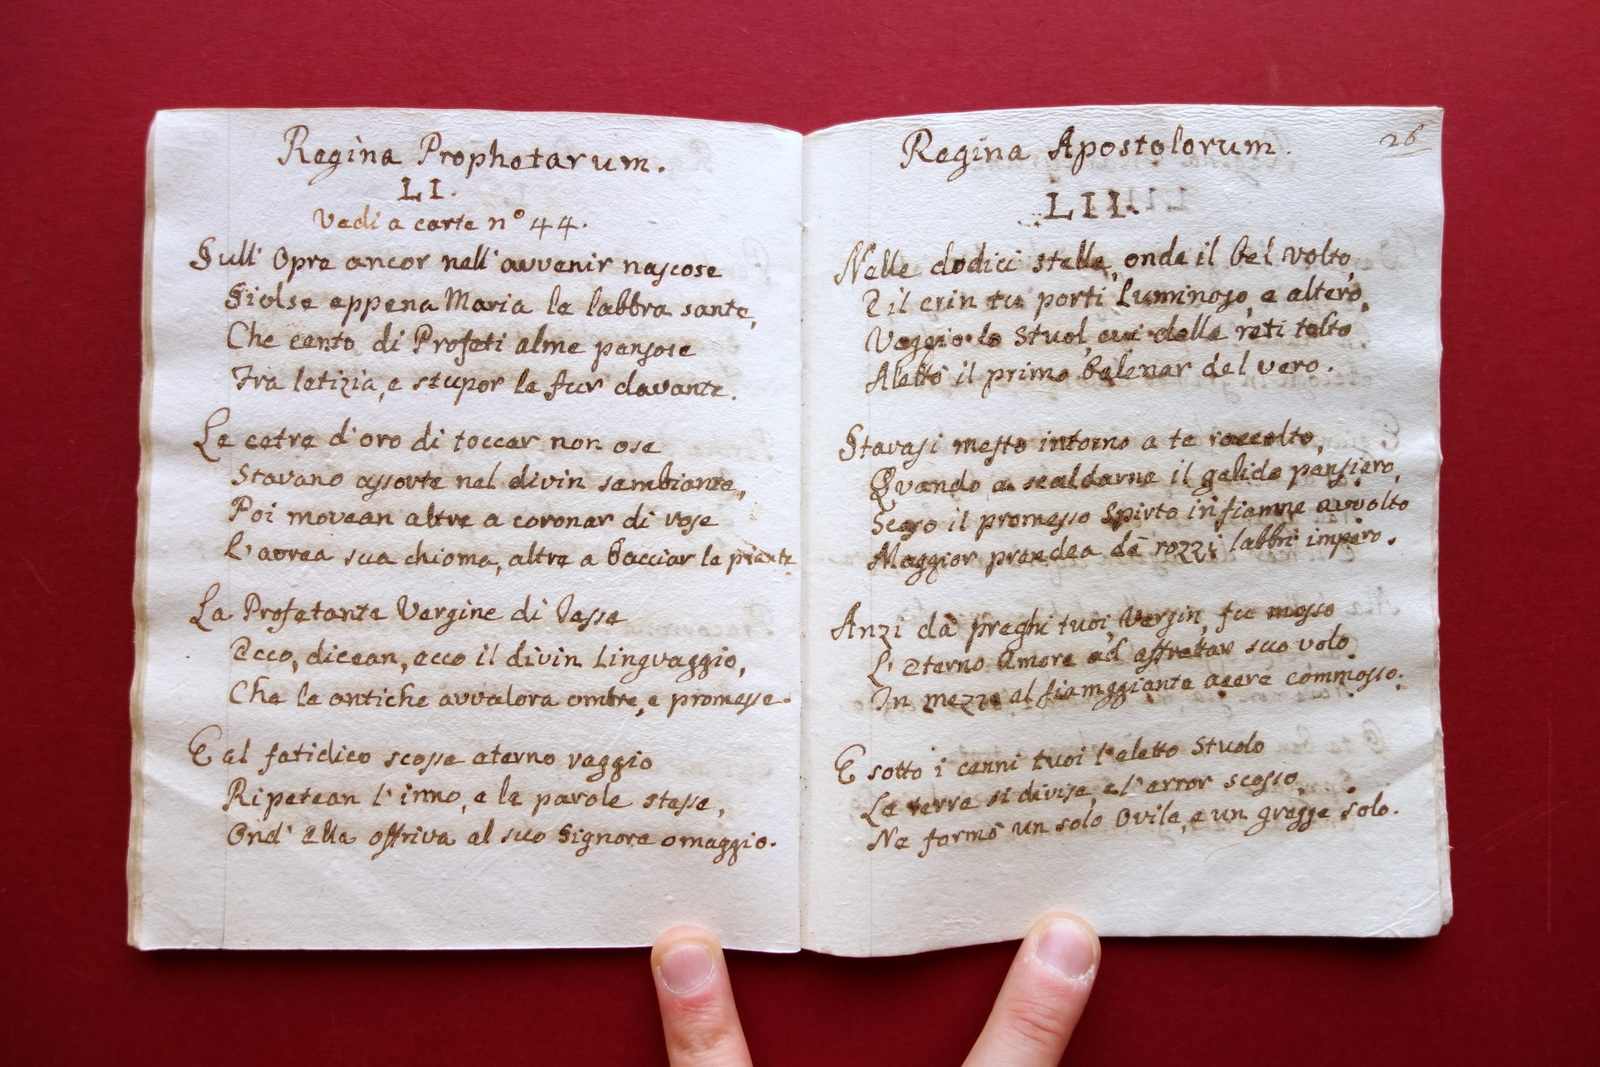 Regina Prophetarum.
LI.
Vedi a carte nº 44.
Sull' Opre ancor nell' avvenir nascose
Sciolse appena Maria le labbra sante,
Che cento di Profeti alme pensose
Tra letizia, e stupor le fur davante.
Le cetre d'oro di toccar non ose
Stavano assorte nel divin sembiante,
Poi movean altre a coronar di rose
L'aurea sua chioma, altre a bacciar le piante
La Profetante Vergine di Jesse
Ecco, dicean, ecco il divin Linguaggio,
Che le antiche avvalora ombre, e promesse.
E al fatidico scosse eterno raggio
Ripetean l'inno, e le parole stesse,
Ond' Ella offriva al suo Signore omaggio.
26
Regina Apostolorum.
LII.
Nelle dodici stelle, onde il bel volto,
E il crin tu porti Luminoso, e altero,
Veggio lo Stuol, cui delle reti tolto
Alettò il primo balenar del vero.
Stavasi mesto intorno a te raccolto,
Quando a scaldarne il gelido pensiero,
Sceso il promesso Spirto in fiamne avvolto
Maggior prendea de rozzi labbri impero.
Anzi da preghi tuoi, Vergin, fu mosso
L' Eterno Amore ad affrettar suo volo
In mezzo al fiammeggiante aere commosso.
E sotto i cenni tuoi l'eletto Stuolo
La terra si divise, e l'error scosso,
Ne formò un solo Ovile, e un gregge solo.